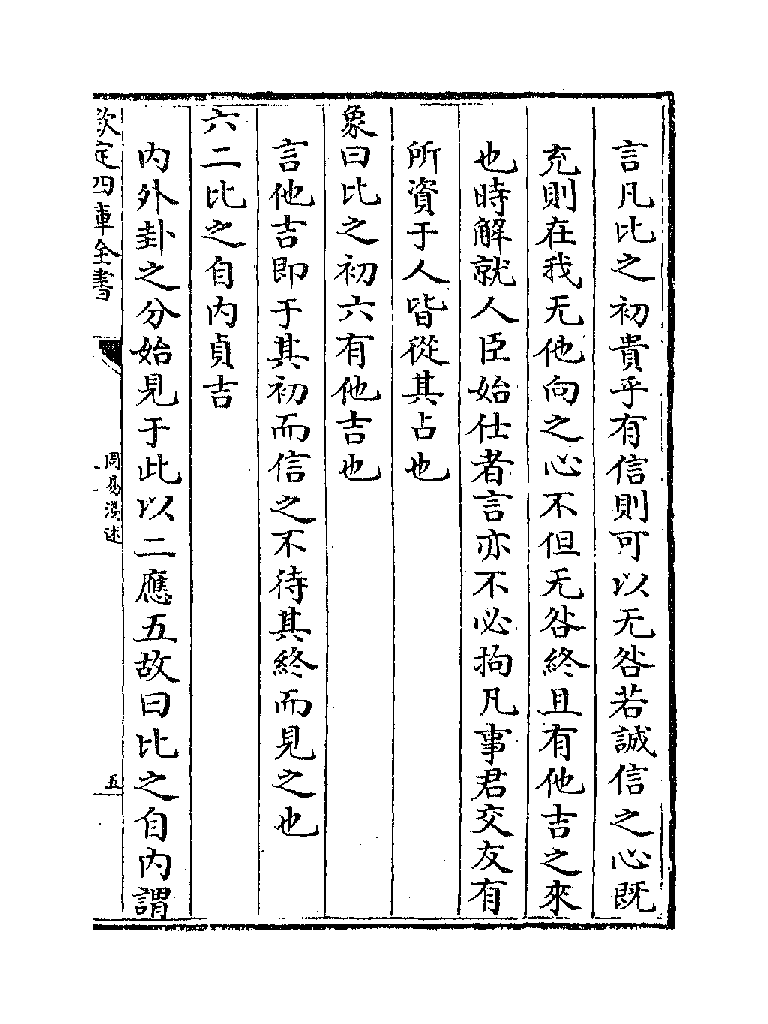 言凡比之初貴乎有信則可以无咎若誠信之心既
充則在我无他向之心不但无咎終且有他吉之來
也時解就人臣始仕者言亦不必拘凡事君交友有
所資于人皆從其占也
象曰比之初六有他吉也
言他吉即于其初而信之不待其終而見之也
六二比之自内貞吉
内外卦之分始見于此以二應五故曰比之自内謂
欽定四庫全書
周易淺述
五